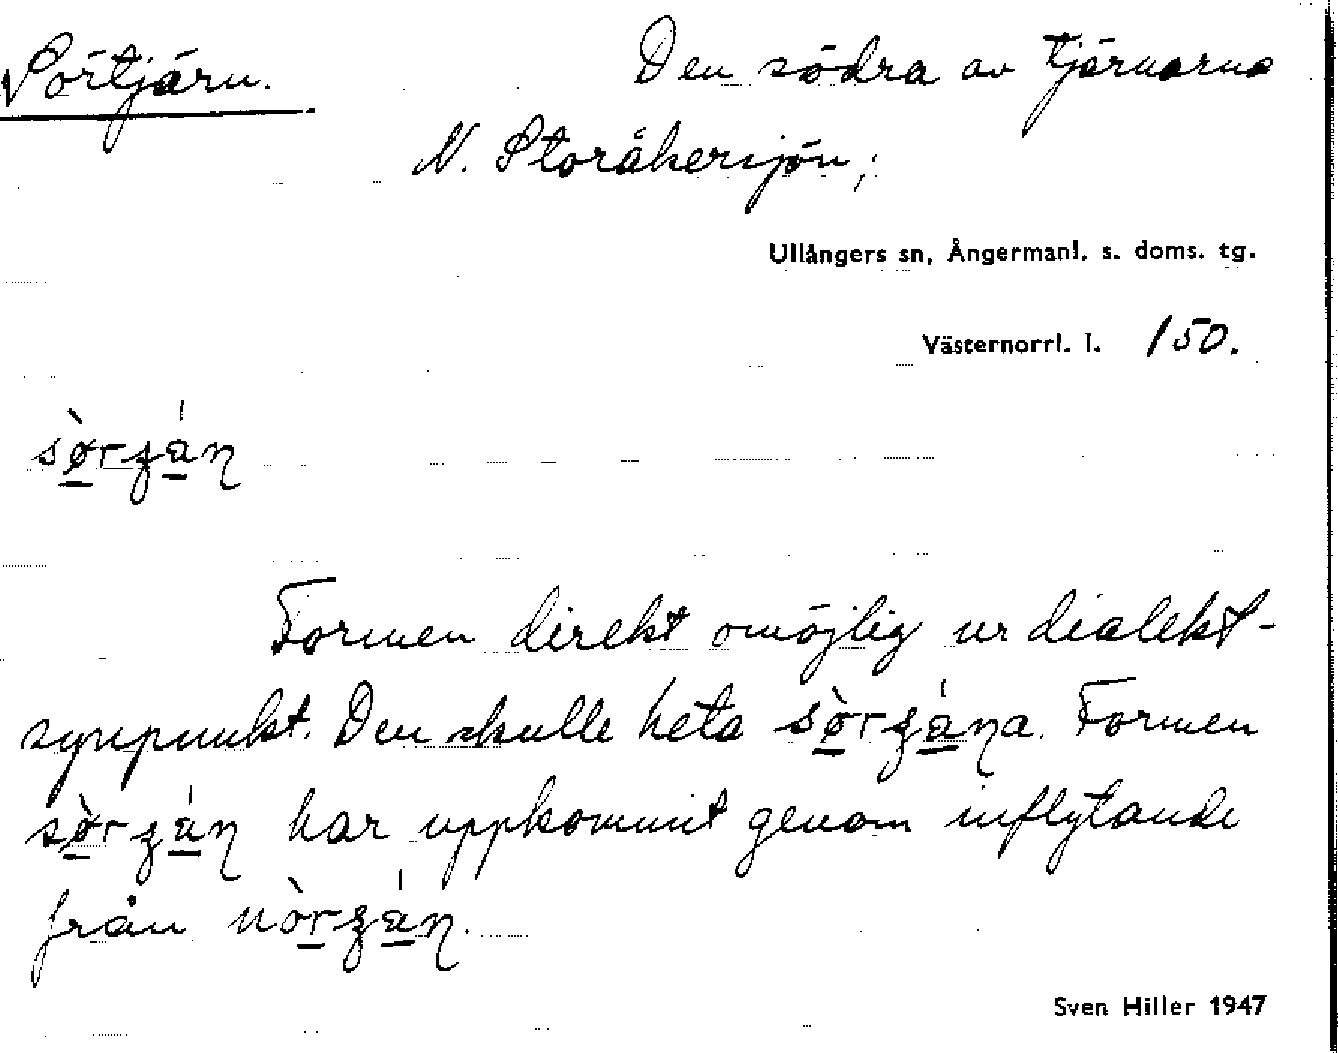 Sörtjärn. Den södra av tjärnarna
N. Storåkersjön;
Ullångers sn, Ångermanl. s. doms. tg.
Västernorrl. l. 150.
sø̀rʒán
Formen direkt omöjlig ur dialekt-
synpunkt. Den skulle heta sø̀rʒána. Formen
sø̀rʒán har uppkommit genom inflytande
från nòrʒán.
Sven Hiller 1947